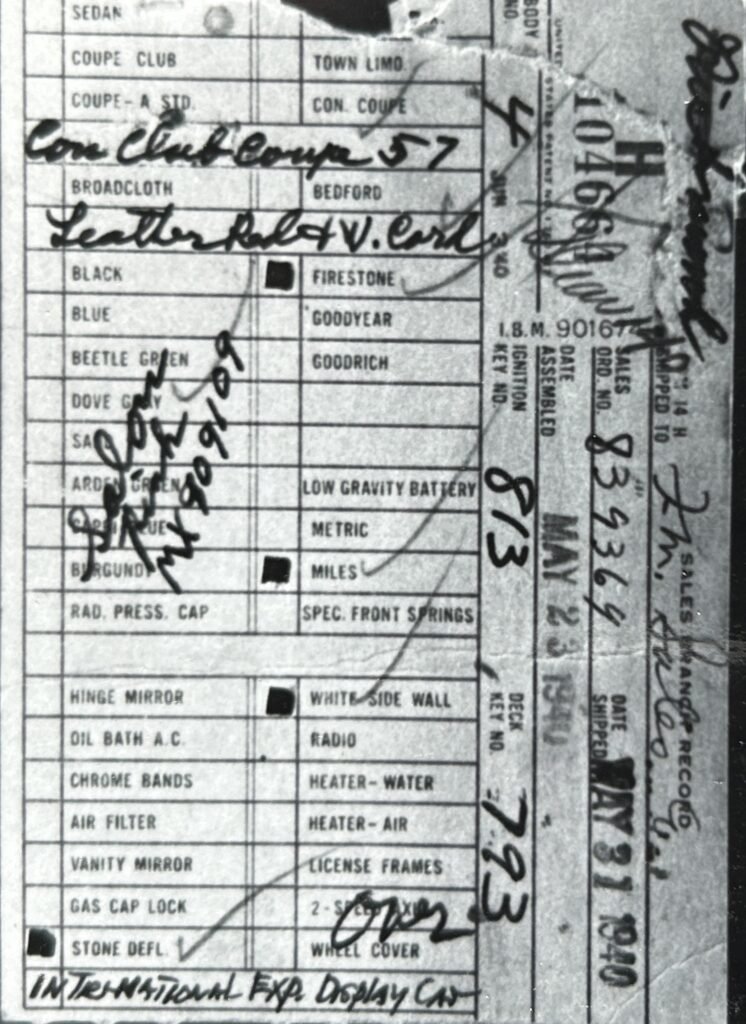 SEDAN
COUPE CLUB TOWN LIMO
COUPE-A STD. CON. COUPE
Con Club Coupe 57
BROADCLOTH BEDFORD
Leather Red & W. Cord
BLACK FIRESTONE
BLUE GOODYEAR
BEETLE GREEN GOODRICH
DOVE GRAY
ARDEN GREEN LOW GRAVITY BATTERY
METRIC
BURGUNDY MILES
RAD. PRESS. CAP SPEC. FRONT SPRINGS
HINGE MIRROR WHITE SIDE WALL
OIL BATH A.C. RADIO
CHROME BANDS HEATER-WATER
AIR FILTER HEATER-AIR
VANITY MIRROR LICENSE FRAMES
GAS CAP LOCK 2-SPEED AXLE
Over
STONE DEFL. WHEEL COVER
INTERNATIONAL EXP. DISPLAY CAR
MX 909109
BODY NO
4
JUN 3 40
IGNITION KEY NO 813
DECK KEY NO. 793
I.B.M. 901674
DATE ASSEMBLED MAY 23 1940
H
104661
SALES ORD. NO. 839369
DATE SHIPPED MAY 31 1940
SHIPPED TO
14 H SALES BRANCH RECORD